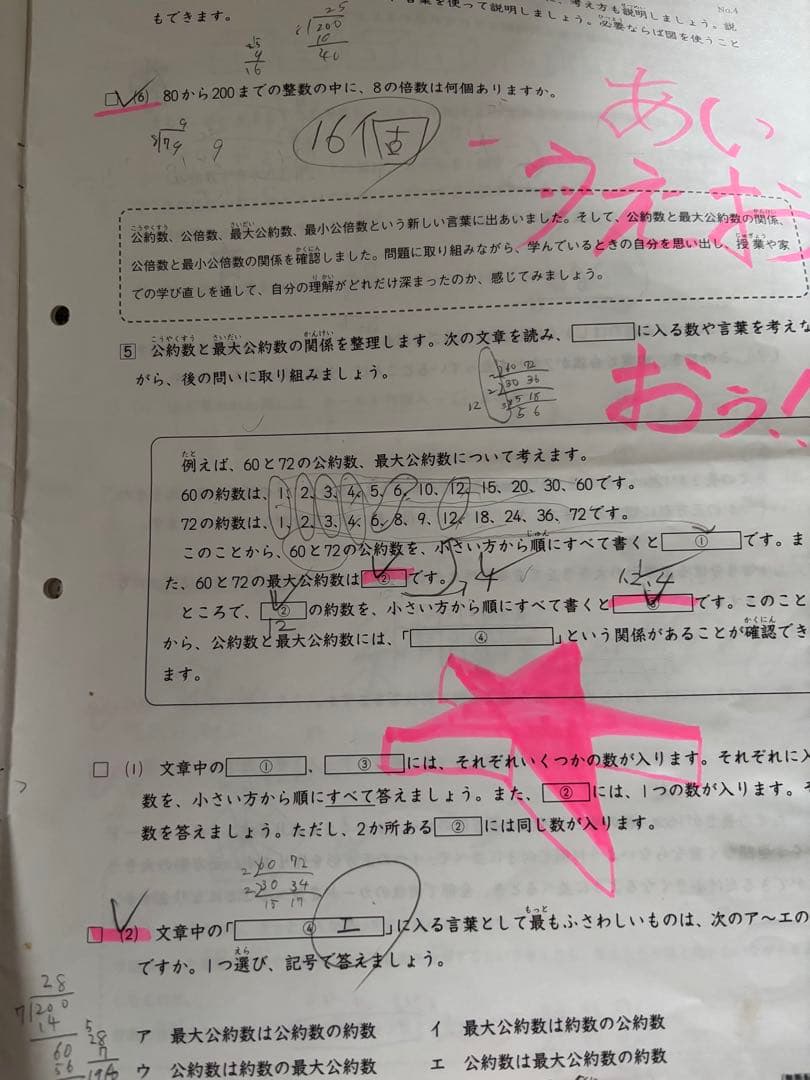 もできます。
考え方も説明しましょう。説
言葉を使って説明しましょう。必要ならば図を使うこと
No.4
25
200
10
40
25
4
16
□ (6) 80から200までの整数の中に、8の倍数は何個ありますか。
16個
9
8 79
9
あい
うえお
公約数、公倍数、最大公約数、最小公倍数という新しい言葉に出あいました。そして、公約数と最大公約数の関係、
公倍数と最小公倍数の関係を確認しました。問題に取り組みながら、学んでいるときの自分を思い出し、授業や家
での学び直しを通して、自分の理解がどれだけ深まったのか、感じてみましょう。
5 公約数と最大公約数の関係を整理します。次の文章を読み、 に入る数や言葉を考えな
がら、後の問いに取り組みましょう。
2 60 72
2 30 36
3 15 18
5 6
12
おぅ!
例えば、60と72の公約数、最大公約数について考えます。
60の約数は、1、2、3、4、5、6、10、12、15、20、30、60です。
72の約数は、1、2、3、4、6、8、9、12、18、24、36、72です。
このことから、60と72の公約数を、小さい方から順にすべて書くと ① です。ま
た、60と72の最大公約数は ② です。
4
1,2,4
ところで、 ② の約数を、小さい方から順にすべて書くと ③ です。このこと
12
から、公約数と最大公約数には、「 ④ 」という関係があることが確認でき
ます。
□ (1) 文章中の ① 、 ③ には、それぞれいくつかの数が入ります。それぞれに入
数を、小さい方から順にすべて答えましょう。また、 ② には、1つの数が入ります。そ
数を答えましょう。ただし、2か所ある ② には同じ数が入ります。
2 60 72
2 30 34
15 17
□ (2) 文章中の「 ④ エ 」に入る言葉として最もふさわしいものは、次のア〜エの
ですか。1つ選び、記号で答えましょう。
28
7 200
14
60
56
5
28
7
196
ア 最大公約数は公約数の約数 イ 最大公約数は約数の公約数
ウ 公約数は約数の最大公約数 エ 公約数は最大公約数の約数